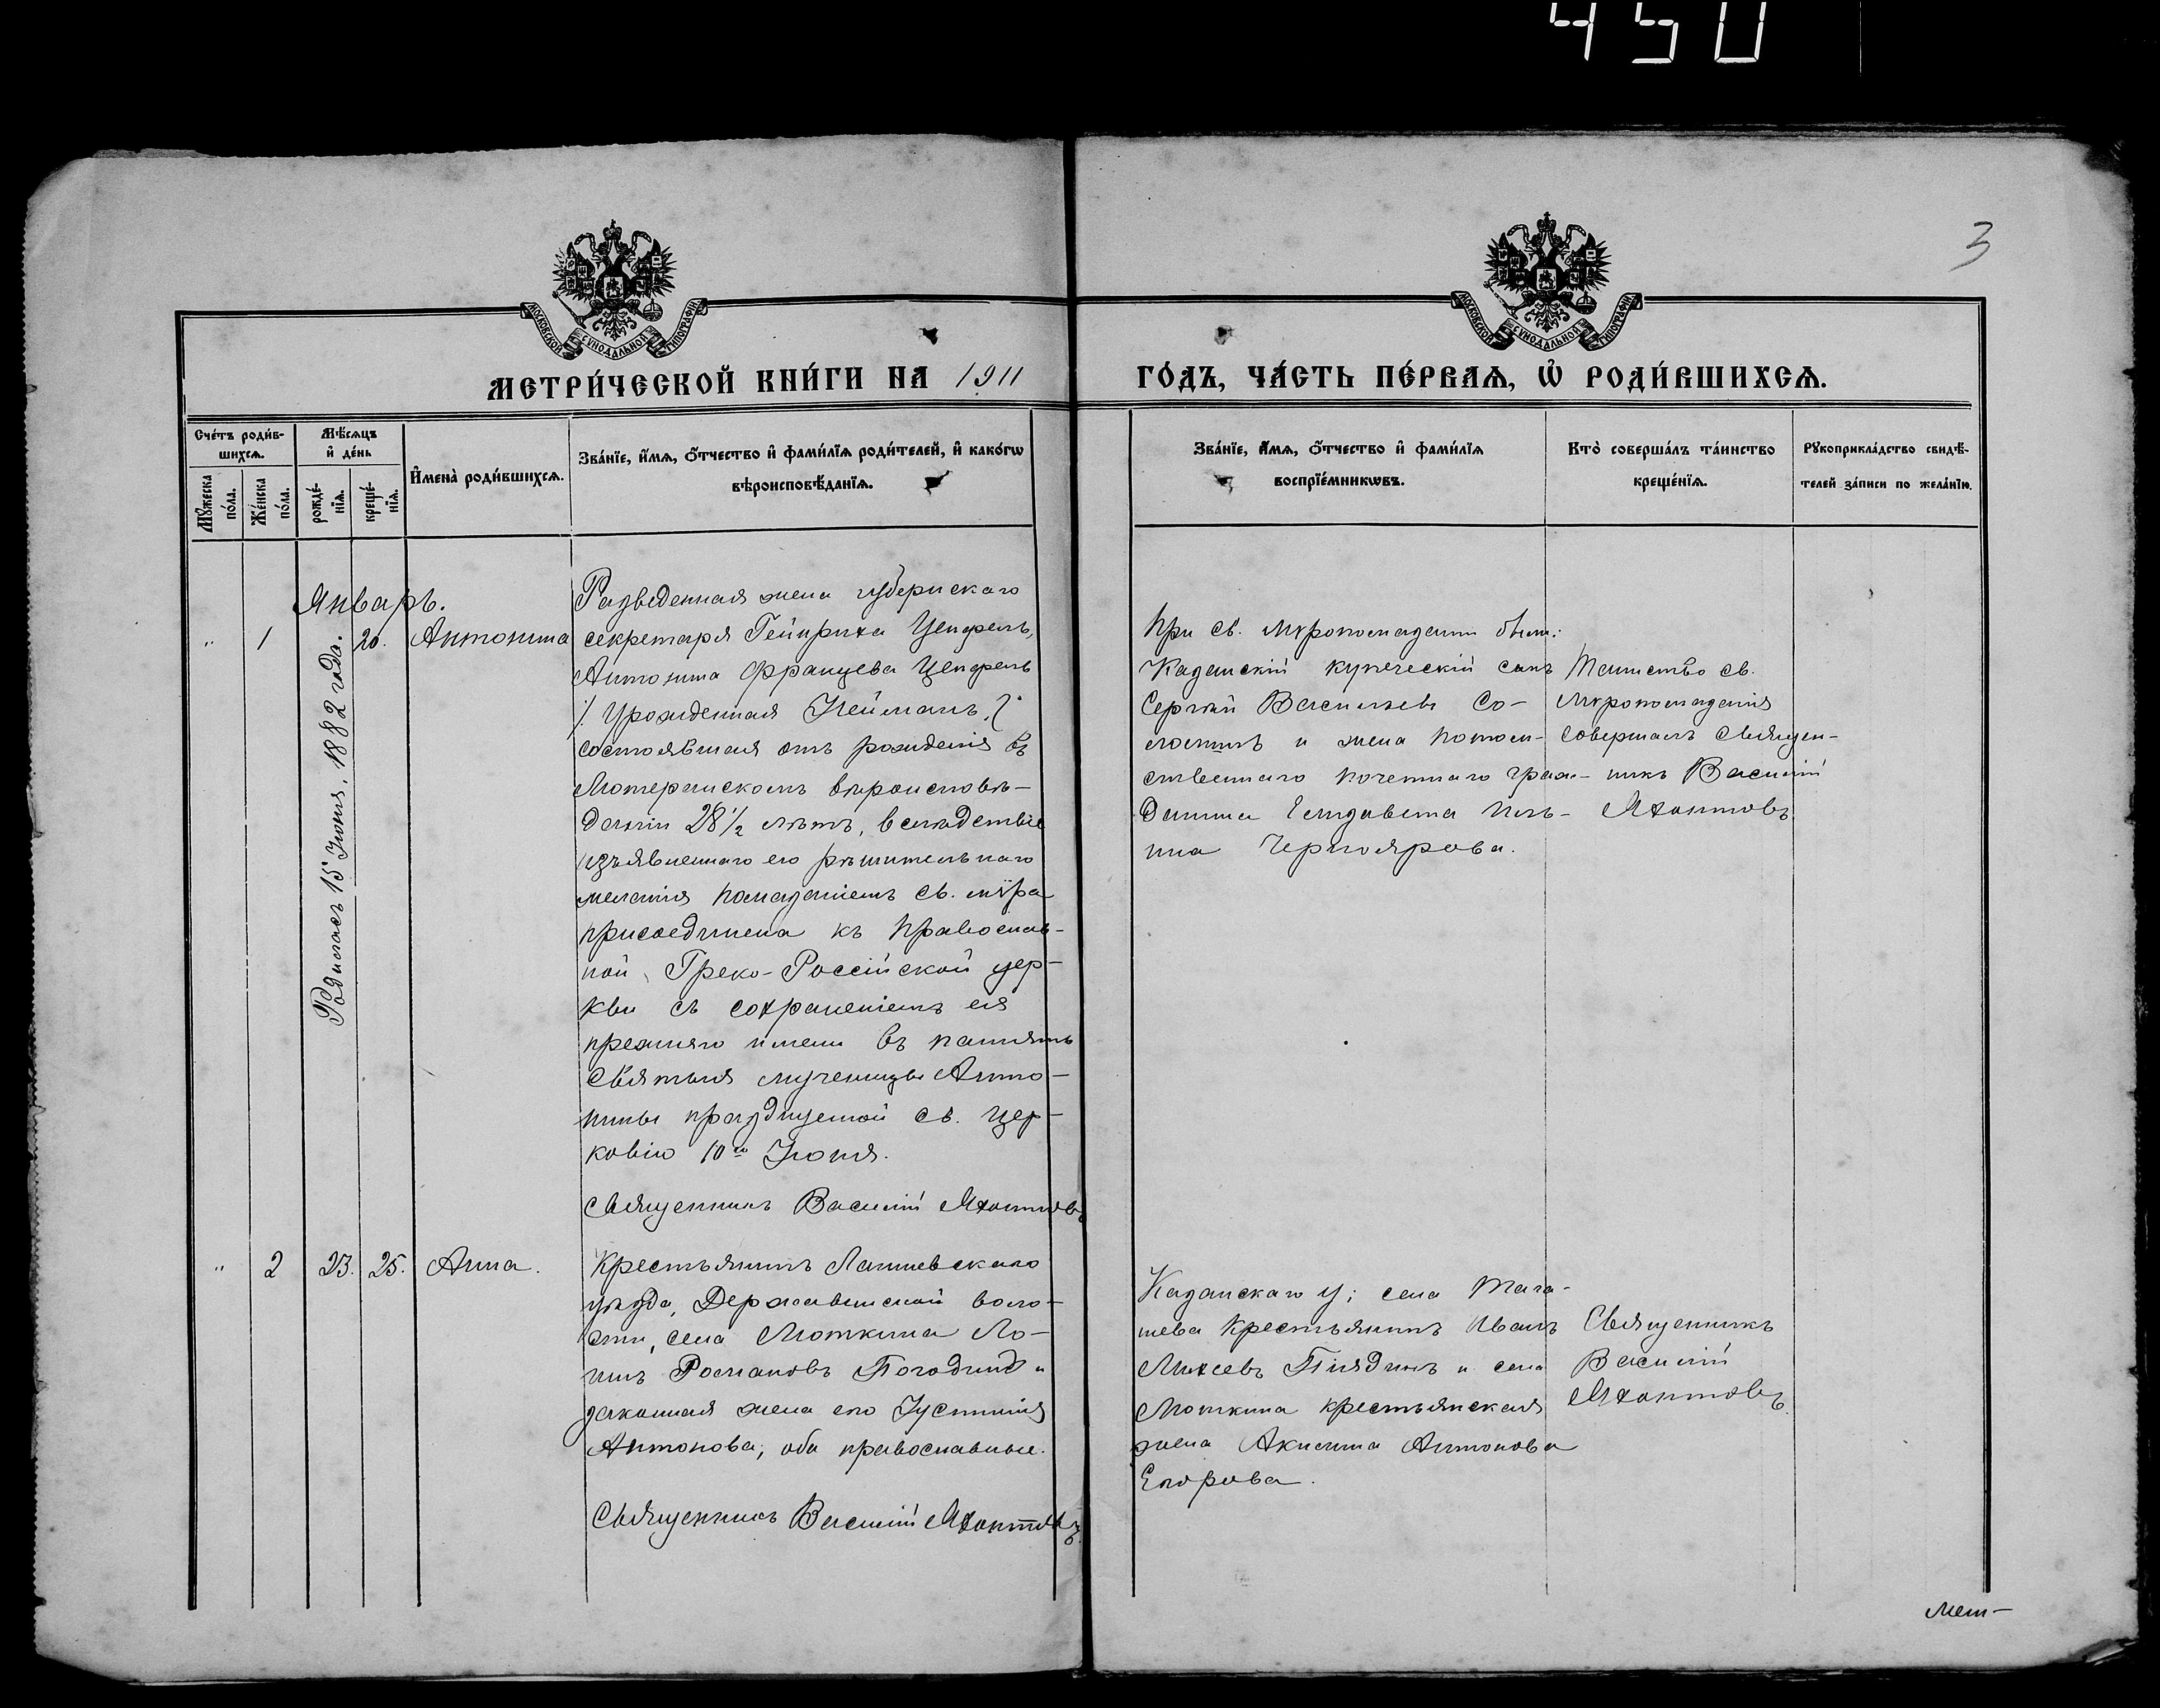 450
3
МОСКОВСКОЙ СУНОДАЛЬНОЙ ТИПОГРАФІИ
МОСКОВСКОЙ СУНОДАЛЬНОЙ ТИПОГРАФІИ
МЕТРИ́ЧЕСКОЙ КНИ́ГИ НА 1911
ГО́ДЪ, ЧА́СТЬ ПЕ́РВАЯ, Ѽ РОДИ́ВШИХСЯ.
Сче́тъ роди́в-
шихсѧ.
Мꙋ́жеска по́ла.
Же́нска по́ла.
Мѣ́сѧцъ
и҆ де́нь
рожде́-нїѧ.
креще́-нїѧ.
И҆мена̀ роди́вшихсѧ.
Зва́нїе, и҆́мѧ, ѻ҆́тчество и҆ фами́лїѧ роди́телей, и҆ како́гѡ
вѣроисповѣ́данїѧ.
Зва́нїе, и҆́мѧ, ѻ҆́тчество и҆ фами́лїѧ
воспрїе́мникѡвъ.
Кто̀ соверша́лъ та́инство
креще́нїѧ.
Рꙋкоприкла́дство свидѣ́-
телей за́писи по жела́нїю.
Январь.
" 1
Родилась 15 Іюня, 1882 года.
20. Антонина
Разведенная жена губернскаго
секретаря Гейнриха Ценфель,
Антонина Францева Ценфель
/. Урожденная Нейманъ ./
состоявшая отъ рожденія въ
Лютеранскомъ вѣроисповѣ-
даніи 28 1/2 лѣтъ, вслѣдствіе
изъявленнаго ею рѣшительнаго
желанія помазаніемъ св. мѵра
присоединена къ Православ-
ной Греко-Россійской цер-
кви съ сохраненіемъ ея
прежняго имени въ память
Святыя мученицы Анто-
нины празднуемой св. цер-
ковію 10го Іюня.
Священникъ Василій Яхонтовъ
При св. мѵропомазаніи были:
Казанскій купеческій сынъ
Сергѣй Васильевъ Со-
лостинъ и жена потом-
ственнаго почетнаго граж-
данина Елизавета Иль-
ина Черноярова.
Таинство св.
мѵропомазанія
совершалъ священ-
никъ Василій
Яхонтовъ
" 2 23. 25. Анна.
Крестьянинъ Лаишевскаго
уѣзда, Державинской воло-
сти, села Моткина Ло-
инъ Романовъ Погодинъ и
законная жена его Іустинія
Антонова, оба православные.
Священникъ Василій Яхонтовъ
Казанскаго у; села Тага-
шева крестьянинъ Иванъ
Михеевъ и села
Моткина крестьянская
жена Акилина Антонова
Егорова.
Священникъ
Василій
Яхонтовъ.
Мет-